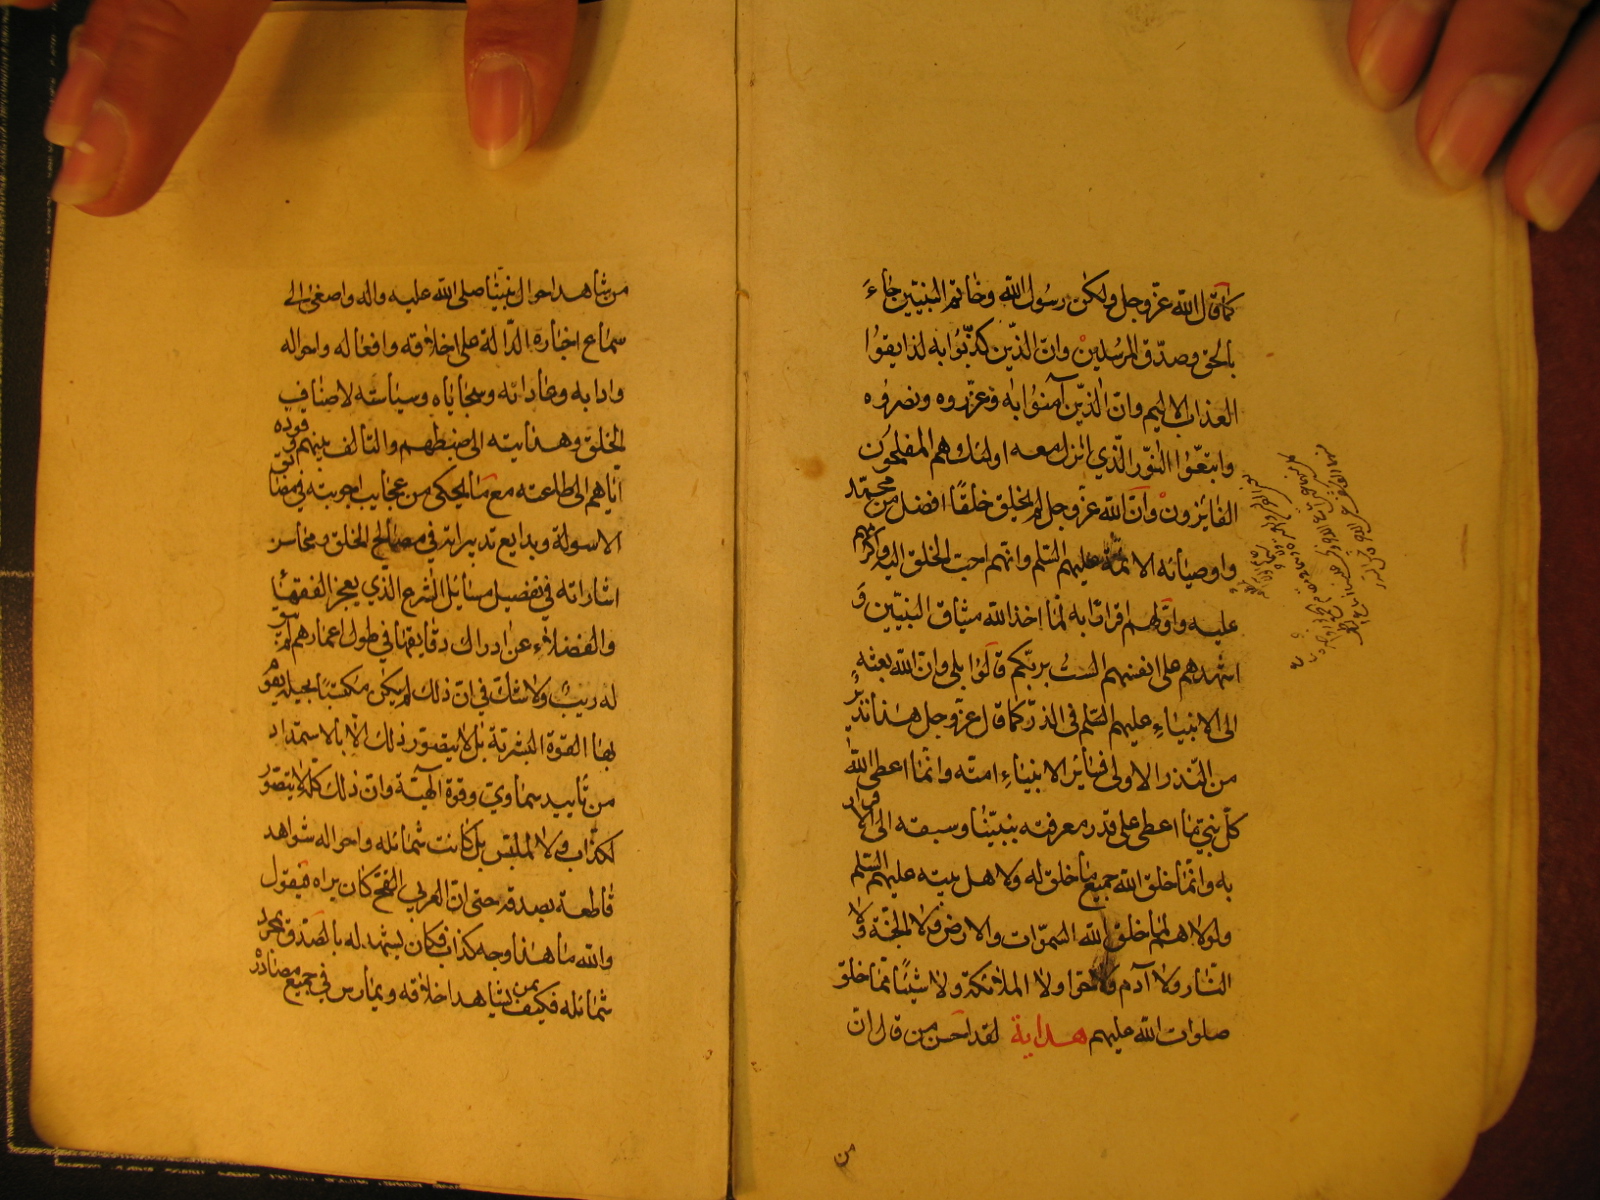 كما قال الله عزّ وجل ولكن رسول الله وخاتم النبيّين جاء
بالحق وصدّق المرسلين وانّ الذّين كذّبوا به لذايقوا
العذاب الاليم وانّ الذّين آمنوا به وعزّروه ونصروه
واتبعّوا النّور الذّي انزل معه اولئك هم المفلحون
الفايزون وانّ الله عزّ وجل لم يخلق خلقًا افضل من محمّد
واوصيائه الائمة عليهم السّلم وانّهم احبّ الخلق اليه واكرمهم
عليه واوّلهم اقرارًا به لمّا اخذ الله ميثاق النبيّين و
اشهدهم على انفسهم الستُ بربّكم قالوا بلى وانّ الله بعثه
الى الانبياء عليهم السّلم فى الذرّ كما قال عزّ وجل هذا نذير
من النّذر الاولى فساير الانبياء امته وانّما اعطى الله
كلّ نبيّ ما اعطى على قدر معرفته بنبيّنا وسبقه الى الاقرار
به وانّما خلق الله جميع ما خلق له ولاهل بيته عليهم السّلم
ولولاهم لما خلق الله السموّات والارض ولا الجنّة ولا
النّار ولا آدم ولا حوا ولا الملائكة ولا شيئًا ممّا خلق
صلوات الله عليهم هداية لقد احسن من قال انّ
من
من شاهد احوال نبيّنا صلى الله عليه واله واصغى الى
سماع اخباره الدّالة على اخلاقه وافعاله واحواله
وادابه وعاداته وسجاياه وسياسته لاصناف
الخلق وهدايته الى ضبطهم والتالف بينهم وقوده
ايّاهم الى طاعته مع ما يحكى من عجايب اجوبته في مضايق
الاسولة وبدايع تدبيراته في مصالح الخلق ومحاسن
اشاراته في تفصيل مسايل الشرع الذي يعجز الفقهاء
والفضلاء عن ادراك دقايقها في طول اعمارهم لم يبق
له ريب ولا شك في انّ ذلك لم يكن مكتسبًا بحيلة يقوم
بها القوة البشرية بل لا يتصور ذلك الّا بالاستمداد
من تأييد سماوي وقوة آلهيّة وانّ ذلك كلّه لا يتصوّر
لكذّاب ولا لملبّس بل كانت شمائله واحواله شواهد
قاطعة بصدقه حتى انّ العربي القحّ كان يراه فيقول
والله ما هذا وجه كذاب فكان يشهد له بالصّدق بمجرد
شمائله فكيف بمن يشاهد اخلاقه ويمارس في جميع مصادره